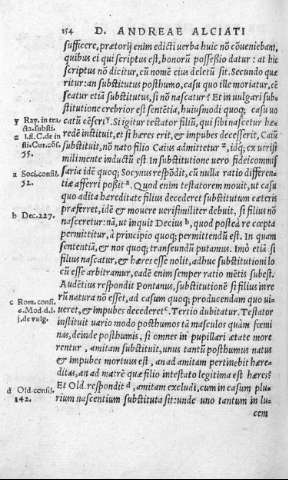 154 D. ANDREAE ALCIATI
sufficere, prætorij enim edicti verba huic nō cōueniebant,
quibus ei qui scriptus est, bonorū possessio datur: at hic
scriptus nō dicitur, cū nomē eius deletū sit. Secundo quæ
ritur: an substitutus posthumo, casu quo ille moriatur, cē
seatur etiā substitutus, si nō nascatur? Et in vulgari subs
stitutione crebrior est sentētia, huiusmodi quoq; casū vo
y Ray. in tra
cta. substi.
z l. C. de in
sti. Cur. cos.
55.
catū cēseri y. Si igitur testator filiū, qui sibi nascetur hæ
redē instituit, et si hæres erit, & impubes decesserit, Caiū
substituit, nō nato filio Caius admittetur z, idq; ex verisi
milimente inductū est in substitutione vero fideicommis
a Soci. consi.
52.
saria idē quoq; Socynus respōdit, cū nulla ratio differen
tiæ afferri possit a. Quod enim testatorem mouit, ut casu
quo adita hæreditate filius decederet substitutum cateris
præferret, idē & mouere verisimiliter debuit, si filius nō
b Dec. 227.
nasceretur: nā, ut inquit Decius b, quod postea re cœpta
permittitur, à principio quoq; permittendū est. In quam
sententiā, & nos quoq; transeundū putamus. Imō etiā si
filius nascatur, & hæres esse nolit, adhuc substitutioni lo
cū esse arbitramur, eadē enim semper ratio mētis subest.
Audētius respōdit Pontanus, substitutionē si filius in re
rū natura nō esset, ad casum quoq; producendam quo vi
c Rom. cons.
6. Mod. d. l.
j. de vulg.
ueret, & impubes decederet c. Tertio dubitatur. Testator
instituit vario modo posthumos tā masculos quàm fœmi
nas, deinde posthumis, si omnes in pupillari ætate more
rentur, amitam substituit, unus tantū posthumus natus
& impubes mortuus est, an ad amitam pertineat hære
ditas, an ad matrē quæ filio intestato legitima est hæres?
d Old. consil.
142.
Et Old. respondit d, amitam excludi, cum in casum plu
rium nascentium substituta sit: unde uno tantum in lu
cem